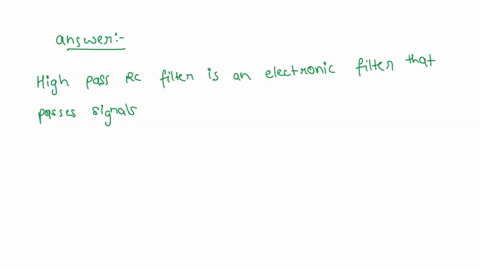 answer:-
High pass RC filter is an electronic filter that
passes signals